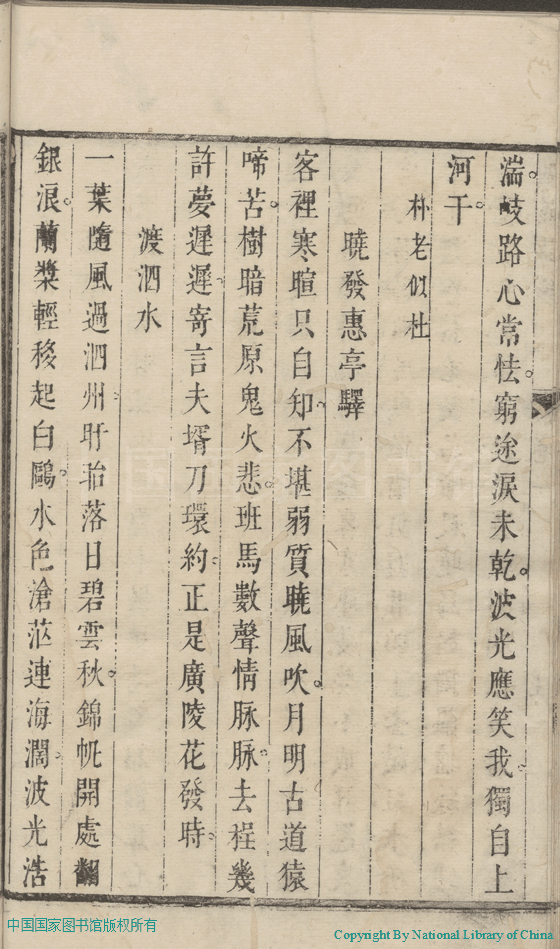 湍岐路心常怯窮途淚未乾波光應笑我獨自上
河干
朴老似杜
曉發惠亭驛
客裡寒暄只自知不堪弱質曉風吹月明古道猿
啼苦樹暗荒原鬼火悲班馬數聲情脉脉去程幾
許夢遲遲寄言夫壻刀環約正是廣陵花發時
渡泗水
一葉隨風過泗州盱眙落日碧雲秋錦帆開處翻
銀浪蘭槳輕移起白鷗水色滄茫連海濶波光浩
中国国家图书馆版权所有
Copyright By National Library of China